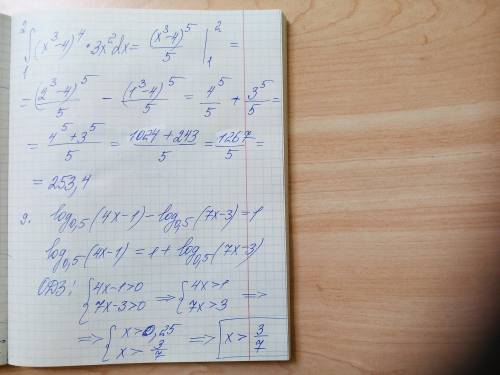 2∫1 (x³-4)⁴ · 3x² dx = (x³-4)⁵/5 |₁² =
= (2³-4)⁵/5 - (1³-4)⁵/5 = 4⁵/5 + 3⁵/5 =
= (4⁵+3⁵)/5 = (1024+243)/5 = 1267/5 =
= 253,4
9. log₀,₅(4x-1) - log₀,₅(7x-3) = 1
log₀,₅(4x-1) = 1 + log₀,₅(7x-3)
ОДЗ: { 4x-1>0 ⇒ { 4x>1 ⇒
7x-3>0 7x>3
⇒ { x>0,25 ⇒ x > 3/7
x > 3/7